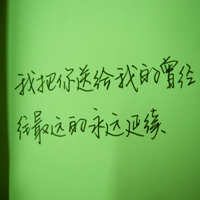 我把你送给我的曾经
最远的永远延续